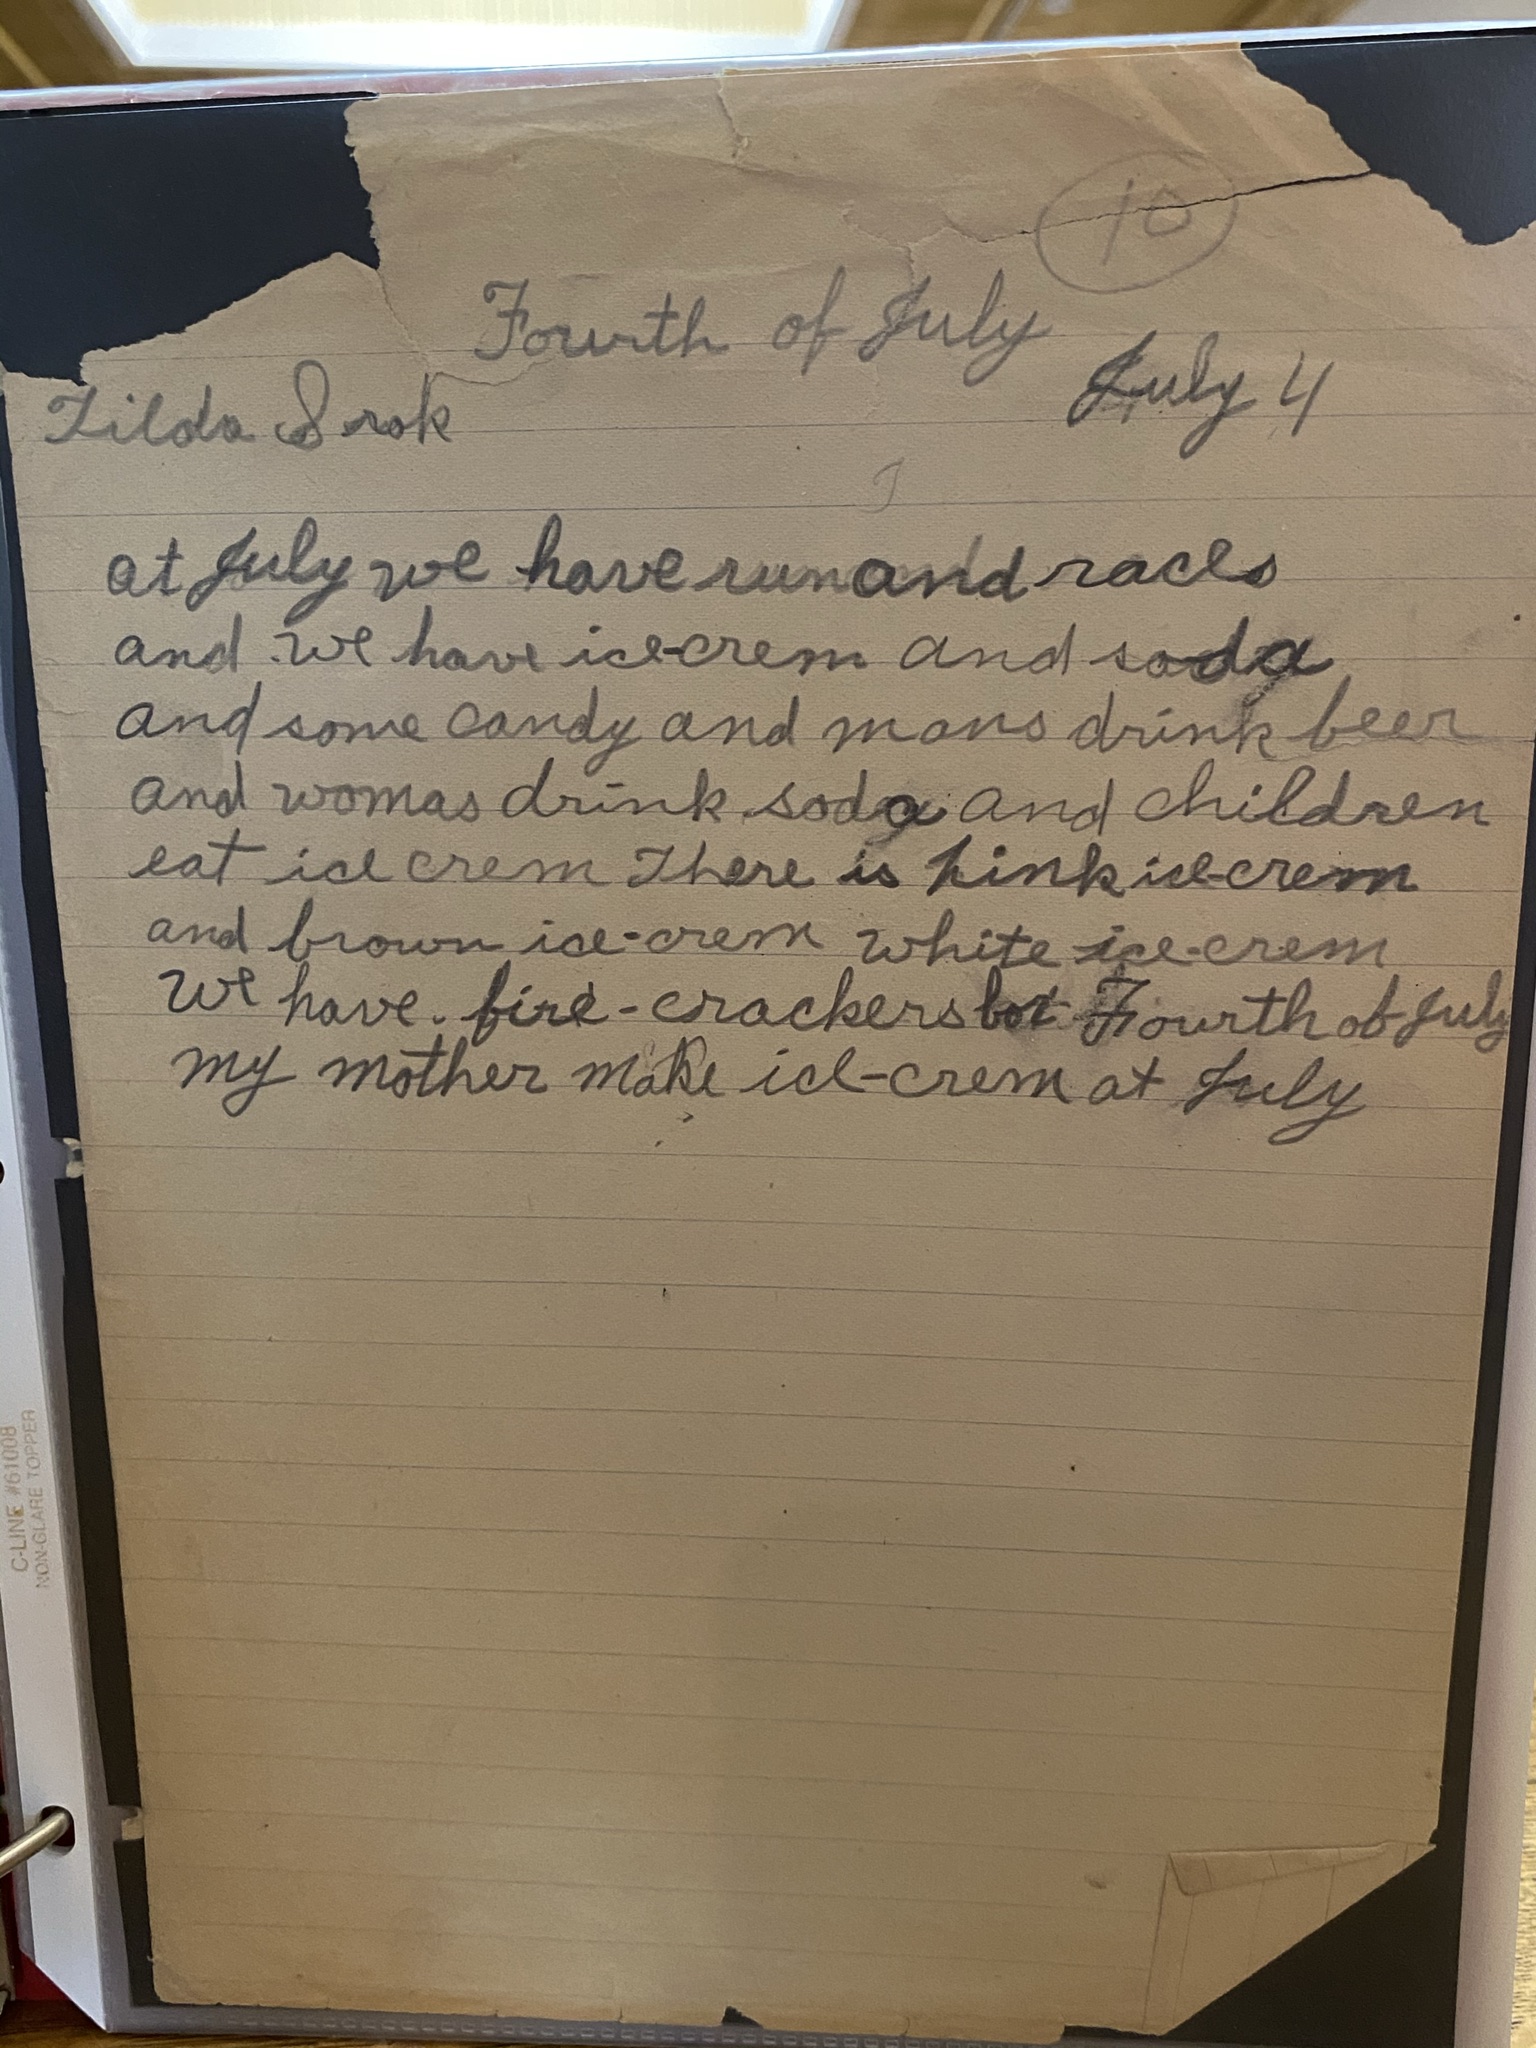 10
Fourth of July
July 4
Tilda Srok
at July we have run and races
and we have ice-crem and soda
and some candy and mans drink beer
and womas drink soda and children
eat ice crem There is pink ice-crem
and brown ice-crem white ice-crem
We have fire-crackers Fourth of July
my mother make ice-crem at July
C-LINE #61008
NON-GLARE TOPPER